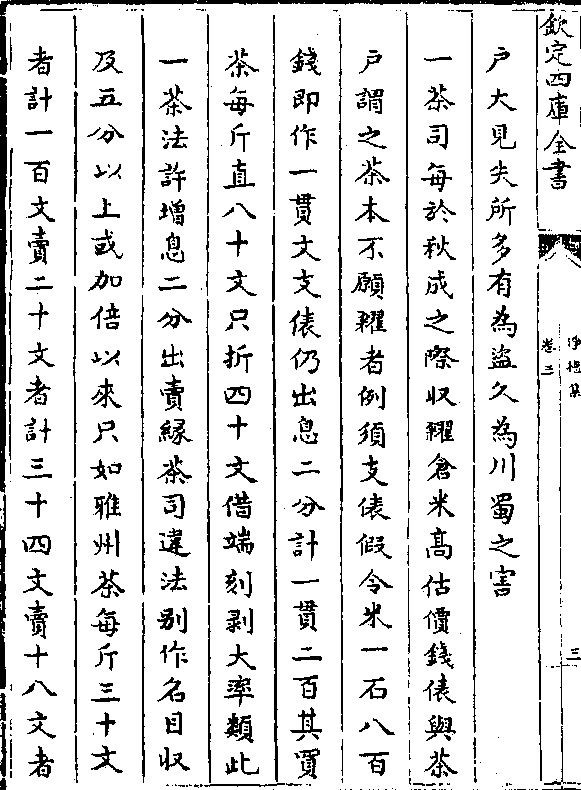 欽定四庫全書
淨德集
卷三
三
戶大見失所多有為盜久為川蜀之害
一茶司每於秋成之際收糴倉米高估價錢俵與茶
戶謂之茶本不願糴者例須支俵假令米一石八百
錢即作一貫文支俵仍出息二分計一貫二百其買
茶每斤直八十文只折四十文借端刻剥大率類此
一茶法許增息二分出賣緣茶司違法别作名目収
及五分以上或加倍以來只如雅州茶每斤三十文
者計一百文賣二十文者計三十四文賣十八文者